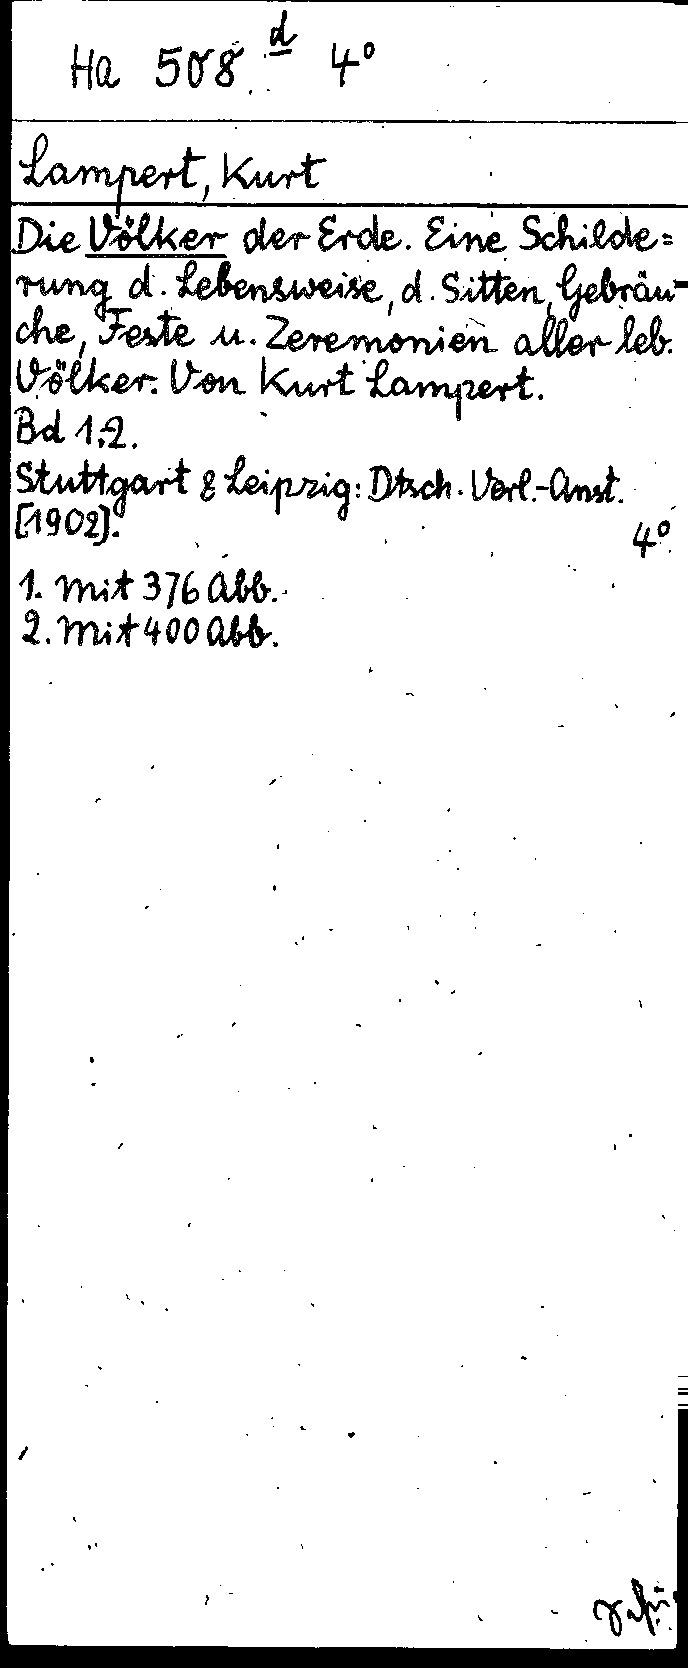 Ha 508 d 4°
Lampert, Kurt
Die Völker der Erde. Eine Schilde=
rung d. Lebensweise, d. Sitten, Gebräu-
che, Feste u. Zeremonien aller leb.
Völker. Von Kurt Lampert.
Bd 1.2.
Stuttgart & Leipzig: Dtsch. Verl.-Anst.
[1902].
4°
1. Mit 376 Abb.
2. Mit 400 Abb.